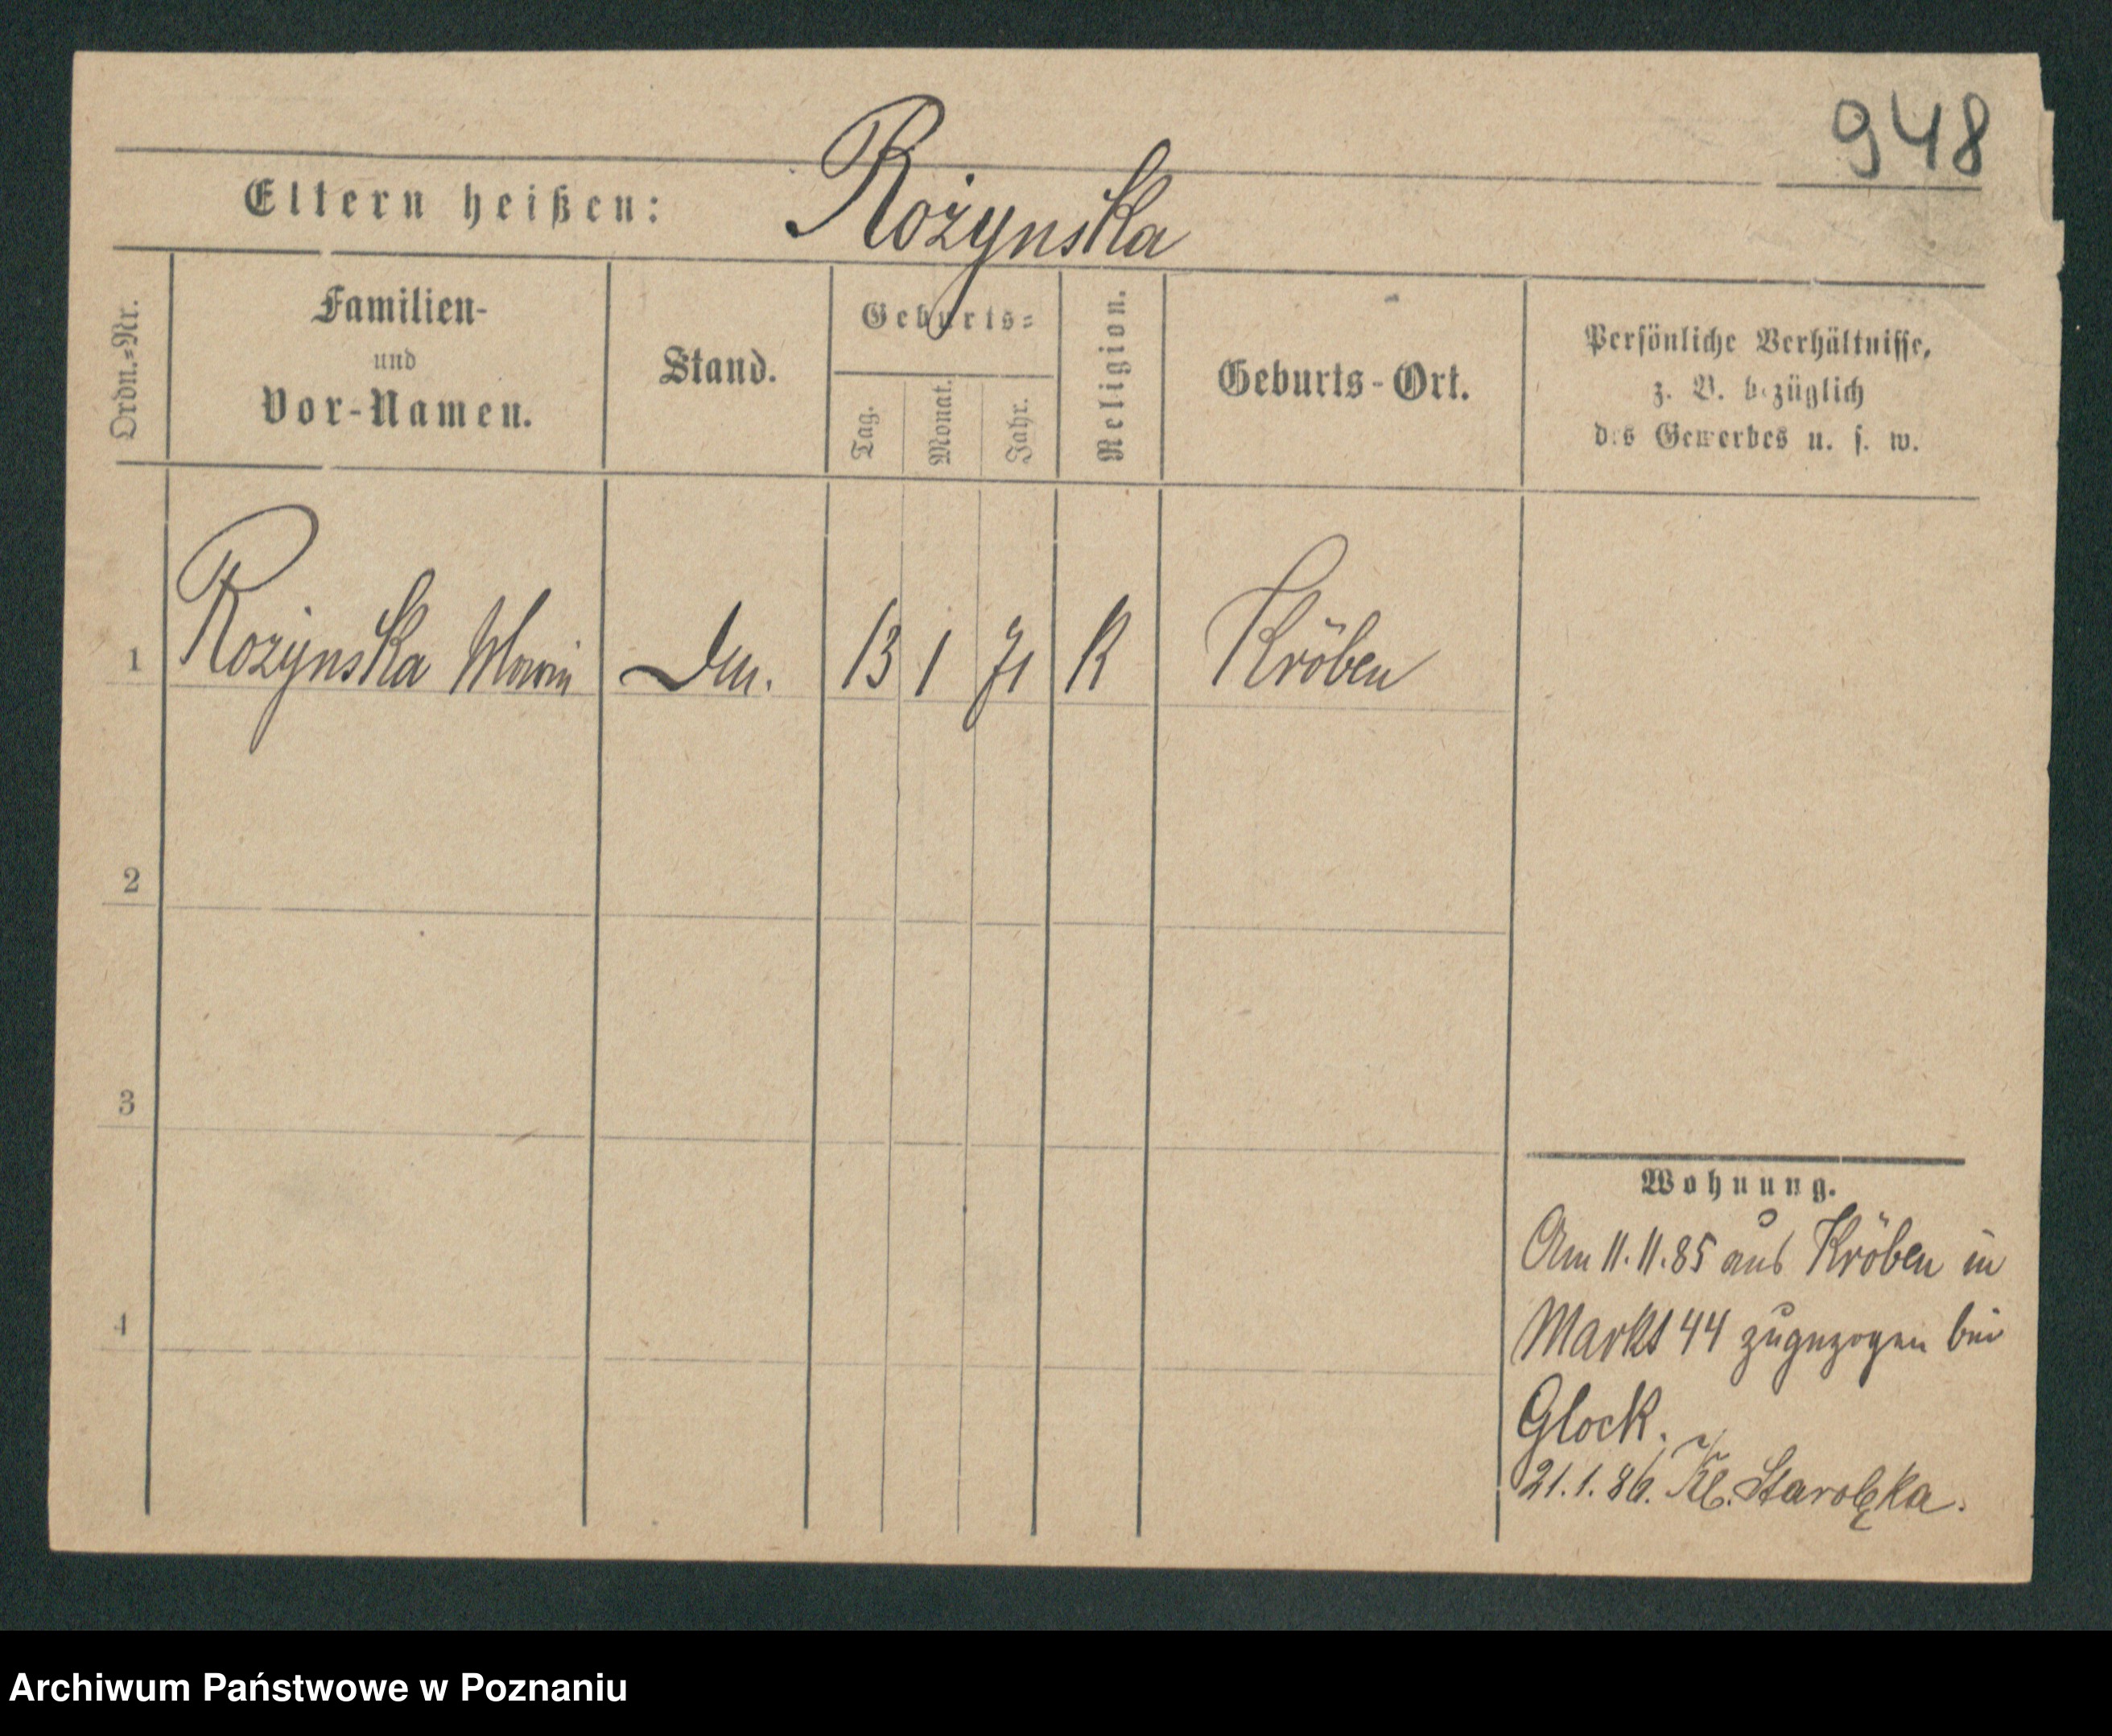 948
Eltern heißen: Rożynska
Ordn.=Nr.
Familien-
und
Vor-Namen.
Stand.
Geburts=
Tag.
Monat.
Jahr.
Religion.
Geburts-Ort.
Persönliche Verhältnisse,
z. B. bezüglich
des Gewerbes u. s. w.
1 Rożynska 13 1 71 K Kröben
2
3
4
Wohnung.
Am 11.11.85 aus Kröben in
Markt 44 zugezogen bei
Glock.
21.1.86. Kl. Starolęka.
Archiwum Państwowe w Poznaniu